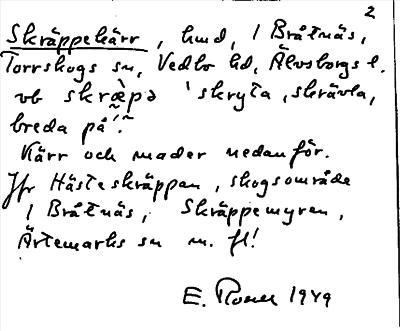 2
Skräppekärr, hmd, 1 Bråtnäs,
Torrskogs sn, Vedbo hd, Älvsborgs l.
vb skræ̀pə 'skryta, skrävla,
breda på'.
Kärr och mader nedanför.
Jfr Hästeskräppan, skogsområde
1 Bråtnäs, Skräppemyren,
Ärtemarks sn m. fl!
E. 1949